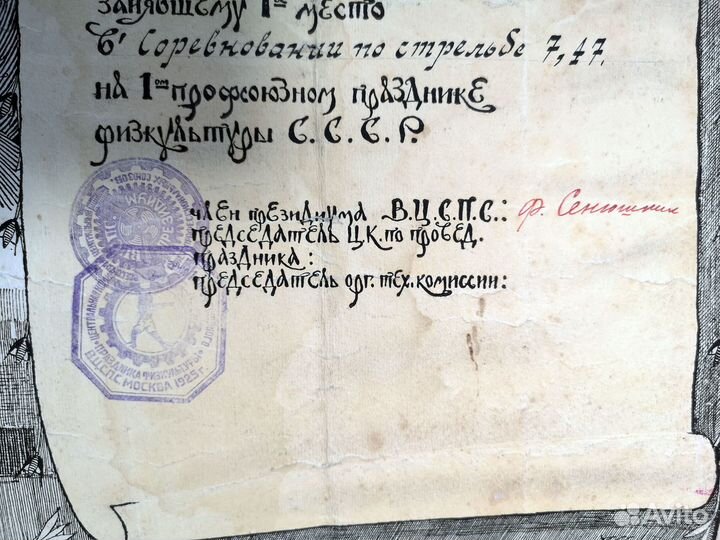 занявшему 1ое место
в соревновании по стрельбе 7,47
на 1ом профсоюзном празднике
физкультуры С.С.С.Р.
член президиума В.Ц.С.П.С.: Ф. Сенюшкин
председатель Ц.К. по провед.
праздника:
председатель орг. тех. комиссии:
ПРЕЗИДИУМ
ЦЕНТРАЛЬНЫЙ
ПРАЗДНИКА ФИЗКУЛЬТУРЫ
В.Ц.С.П.С. МОСКВА 1925 г.
Avito